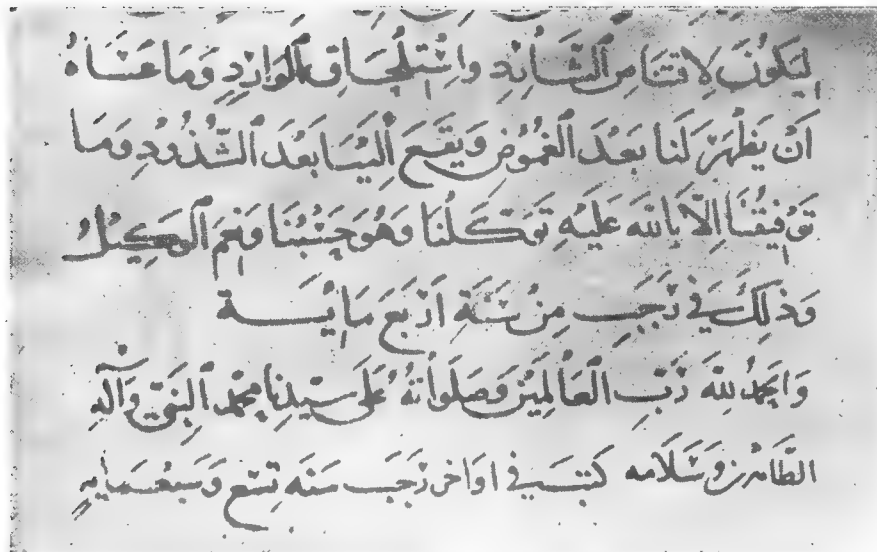 لِيَكُونَ لِاقتنَاصِ الشَّارِدِ وَاسْتِلْحَاقِ الْوَارِدِ وَمَا عَسَاهُ
اَنْ يَظْهَرَ لَنَا بَعْدَ الْغُمُوْضِ وَيَقَعَ اِلَيْنَا بَعْدَ الشُّذُوْذِ وَمَا
تَوْفِيقُنَا اِلَّا بِاللَّهِ عَلَيْهِ تَوَكَّلْنَا وَهُوَ حَسْبُنَا وَنِعْمَ الْوَكِيْلُ
وَذٰلِكَ فِي رَجَبٍ مِنْ سَنَةِ اَرْبَعِ مَائِيَة
وَالحَمْدُ لِلَّهِ رَبِّ الْعَالَمِيْنَ وَصَلَوَاتُهُ عَلَى سَيِّدِنَا مُحَمَّدٍ النَّبِيِّ وَآلِهِ
الطَّاهِرِينَ وَسَلَامه كتب في اواخر رَجَب سَنَه تِسْع وَسَبْعمايه